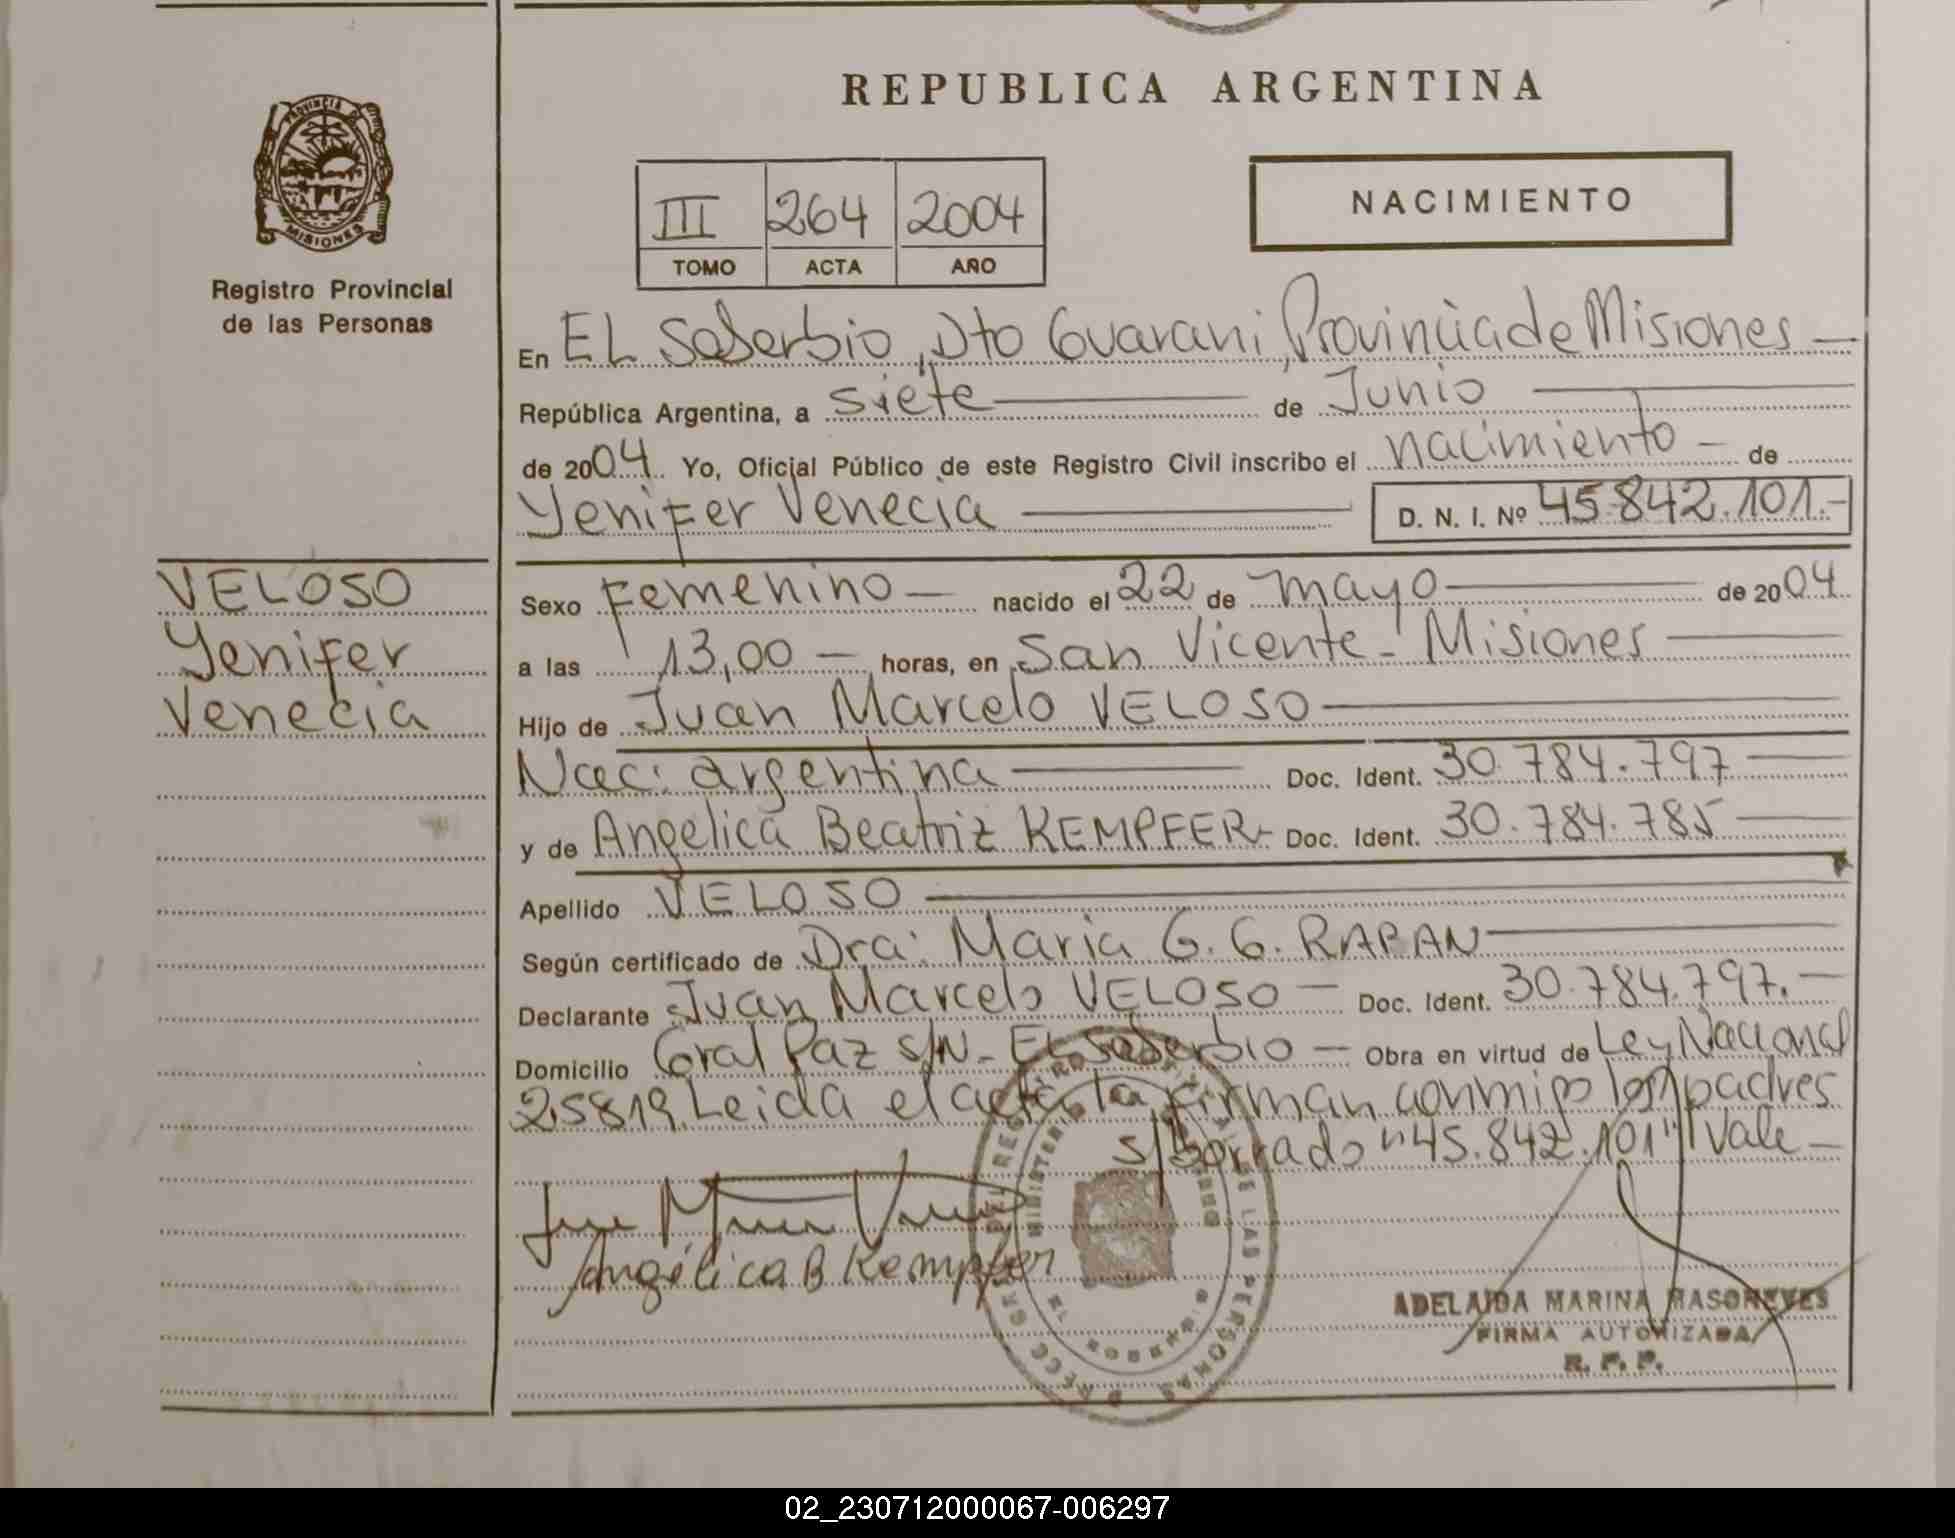 REPUBLICA ARGENTINA
PROVINCIA DE
MISIONES
Registro Provincial
de las Personas
III 264 2004
TOMO ACTA AÑO
NACIMIENTO
En EL Soberbio, Dto Guarani, Provincia de Misiones
República Argentina, a siete de Junio
de 2004 Yo, Oficial Público de este Registro Civil inscribo el nacimiento de
Yenifer Venecia D. N. I. Nº 45.842.101.-
VELOSO
Yenifer
Venecia
Sexo Femenino nacido el 22 de mayo de 2004
a las 13,00 horas, en San Vicente - Misiones
Hijo de Juan Marcelo VELOSO
Nac: argentina Doc. Ident. 30.784.797
y de Angelica Beatriz KEMPFER- Doc. Ident. 30.784.785
Apellido VELOSO
Según certificado de Dra: Maria G. G. RAPAN
Declarante Juan Marcelo VELOSO - Doc. Ident. 30.784.797.-
Domicilio Gral Paz S/N - EL Soberbio - Obra en virtud de Ley Nacional
25819. Leida el acta la firman conmigo los padres
s/Borrado "45.842.101" Vale -
Angélica B Kempfer
ADELAIDA MARINA MASONEVES
FIRMA AUTORIZADA
R. P. P.
02_230712000067-006297